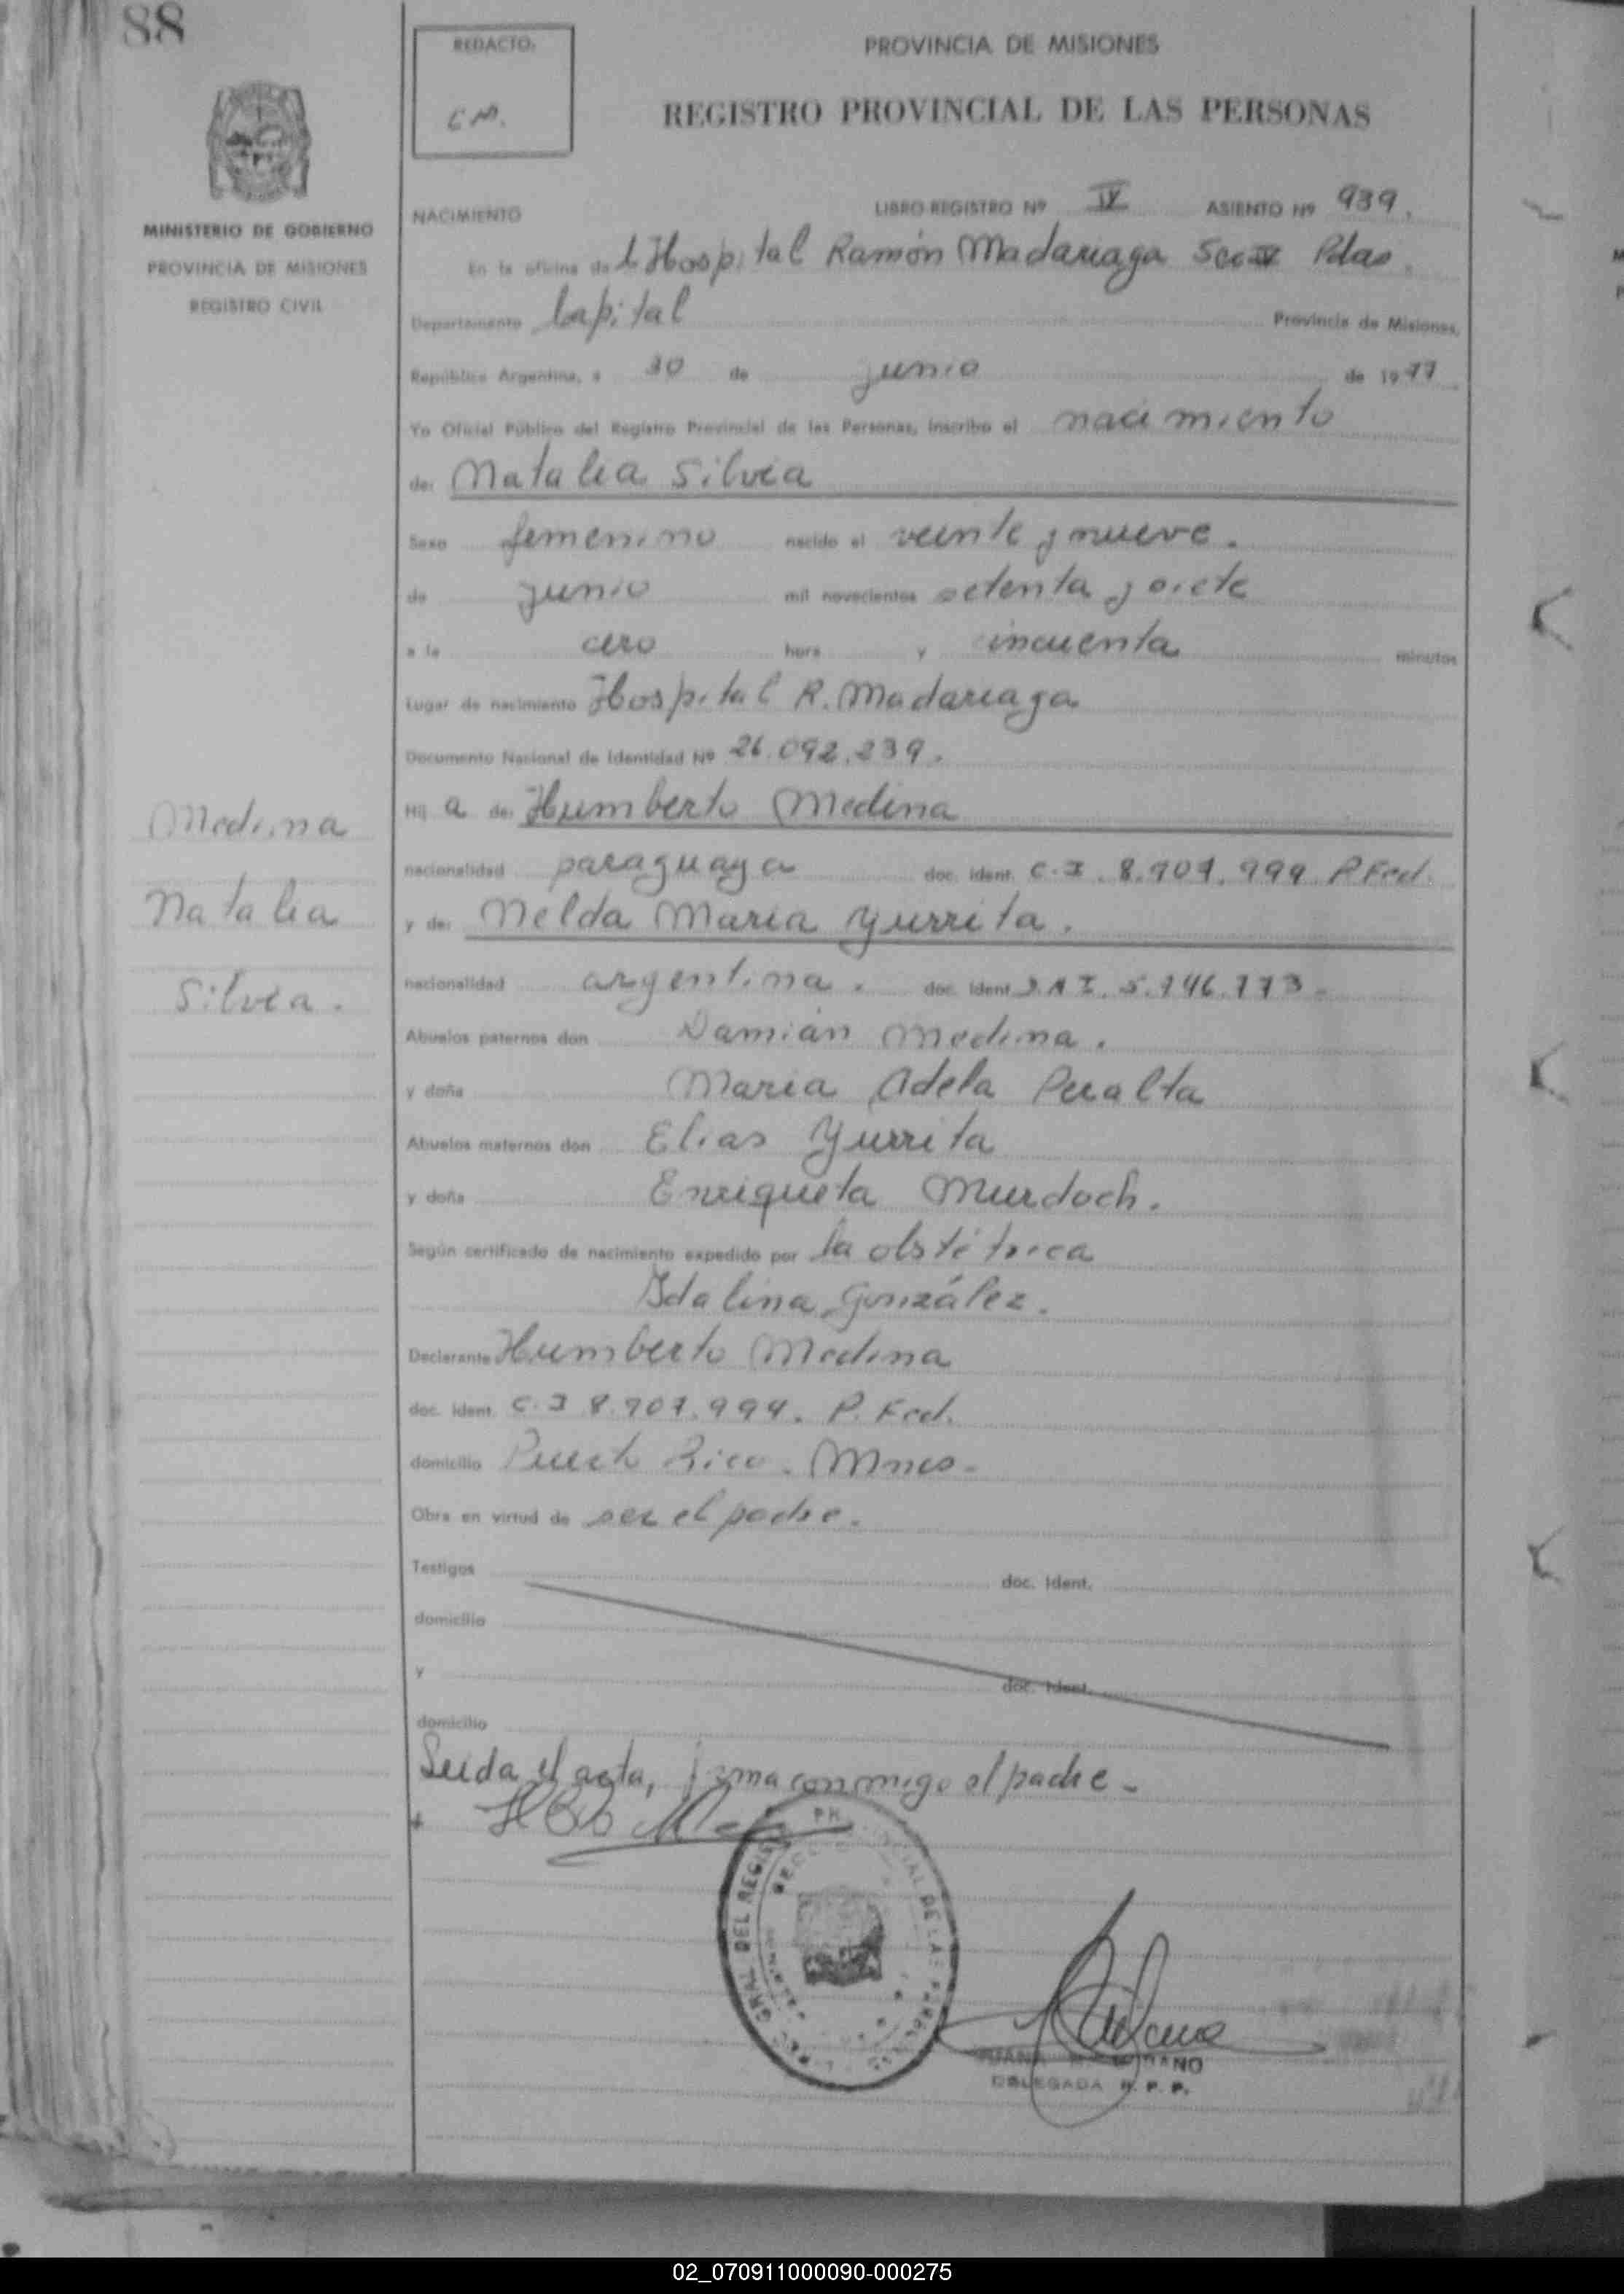 88
REDACTO:
C M.
PROVINCIA DE MISIONES
REGISTRO PROVINCIAL DE LAS PERSONAS
MINISTERIO DE GOBIERNO
PROVINCIA DE MISIONES
REGISTRO CIVIL
NACIMIENTO LIBRO REGISTRO Nº IV ASIENTO Nº 939.
En la oficina del Hospital Ramón Madariaga Scc IV Pdas.
Departamento Capital Provincia de Misiones,
República Argentina, a 30 de junio de 1977
Yo Oficial Público del Registro Provincial de las Personas, inscribo el nacimiento
de: Natalia Silvia
Sexo femenino nacido el veinte y nueve.
de junio mil novecientos setenta y siete
a la cero hora y cincuenta minutos
Lugar de nacimiento Hospital R. Madariaga
Documento Nacional de Identidad Nº 26.092.239.
Hij a de: Humberto Medina
nacionalidad paraguaya doc. ident. C.I. 8.707.999 P Fed.
y de: Nelda María Yurrita.
nacionalidad argentina. doc. ident D.N.I. 5.746.773.
Medina
Natalia
Silvia.
Abuelos paternos don Damián Medina.
y doña María Adela Peralta
Abuelos maternos don Elias Yurrita
y doña Enriqueta Murdoch.
Según certificado de nacimiento expedido por la obstétrica
Idalina González.
Declarante Humberto Medina
doc. ident. C.I 8.707.999. P. Fed.
domicilio Puerto Rico. Mnes-
Obra en virtud de ser el padre.
Testigos doc. ident.
domicilio
y doc. ident.
domicilio
Leida el acta, firma conmigo el padre-
GRAL DEL REGIS PR CIAL DE LAS
JUANA
DELEGADA R. P. P.
02_070911000090-000275